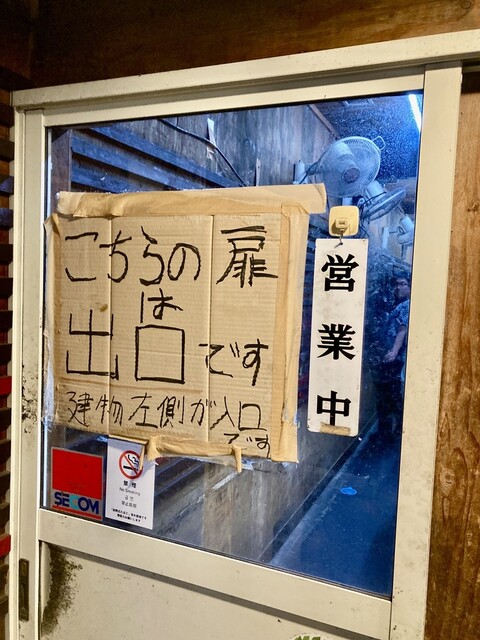 こちらの扉
は
出口です
建物左側が入口
です
営業中
SECOM
禁煙
No Smoking